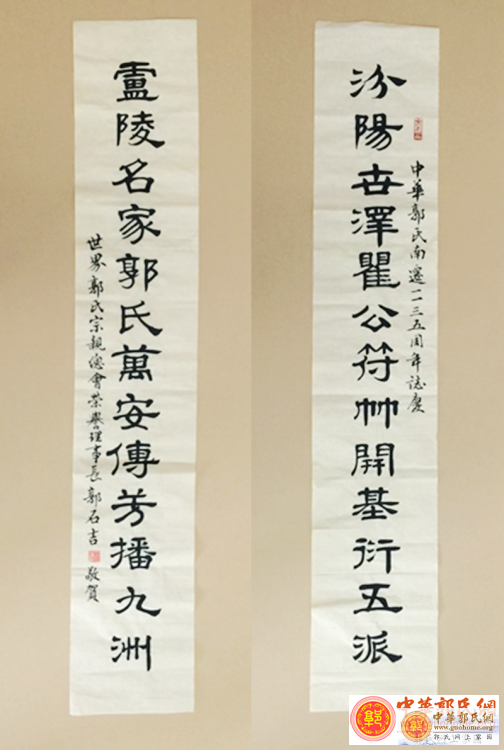 中華郭氏南遷一一三五周年誌慶
汾陽世澤瞿公符竹開基衍五派
盧陵名家郭氏萬安傳芳播九洲
世界郭氏宗親總會榮譽理事長郭石吉敬賀
中華郭氏網
中華郭氏網
www.guohome.org